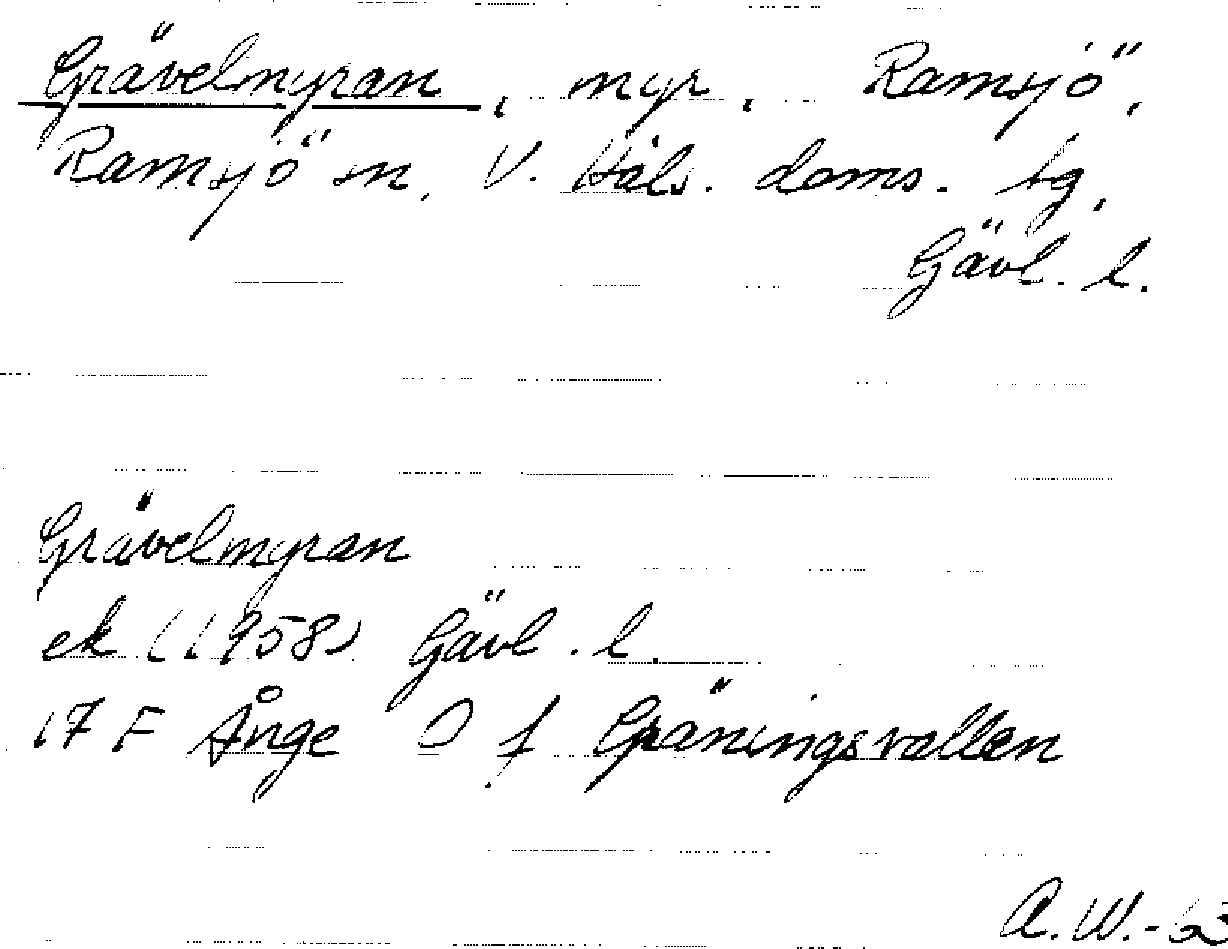 Grävelmyran, myr, Ramsjö,
Ramsjö sn, V. Häls. doms. tg,
Gävl. l.
Grävelmyran
ek (1958) Gävl. l.
17 F Ånge O f Gräningsvallen
A. W. -